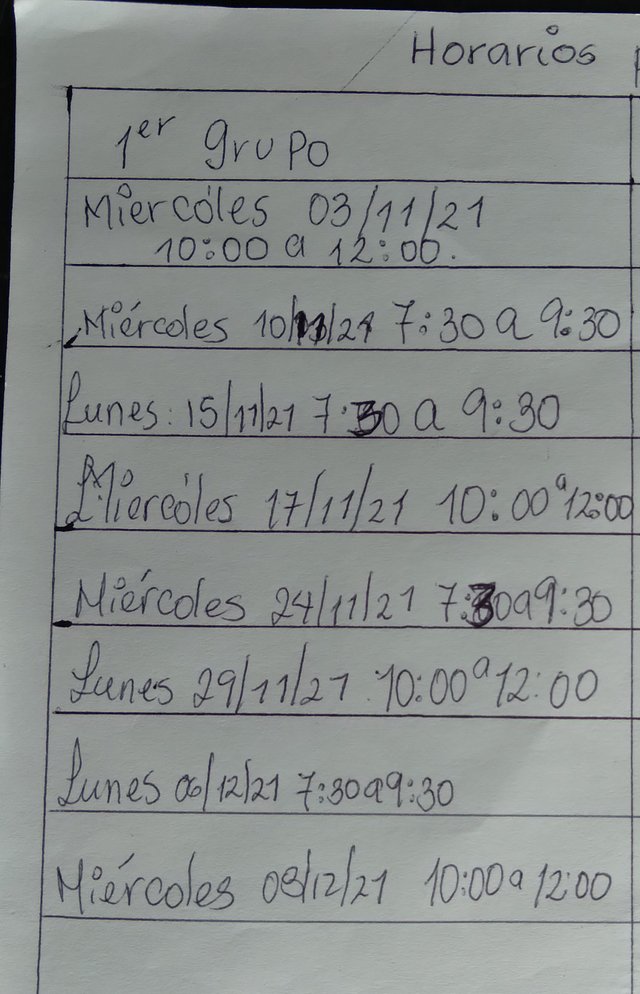 Horarios
1er grupo
Miercóles 03/11/21
10:00 a 12:00.
Miércoles 10/11/21 7:30 a 9:30
Lunes: 15/11/21 7:30 a 9:30
Miercóles 17/11/21 10:00 a 12:00
Miércoles 24/11/21 7:30 a 9:30
Lunes 29/11/21 10:00 a 12:00
Lunes 06/12/21 7:30 a 9:30
Miércoles 08/12/21 10:00 a 12:00